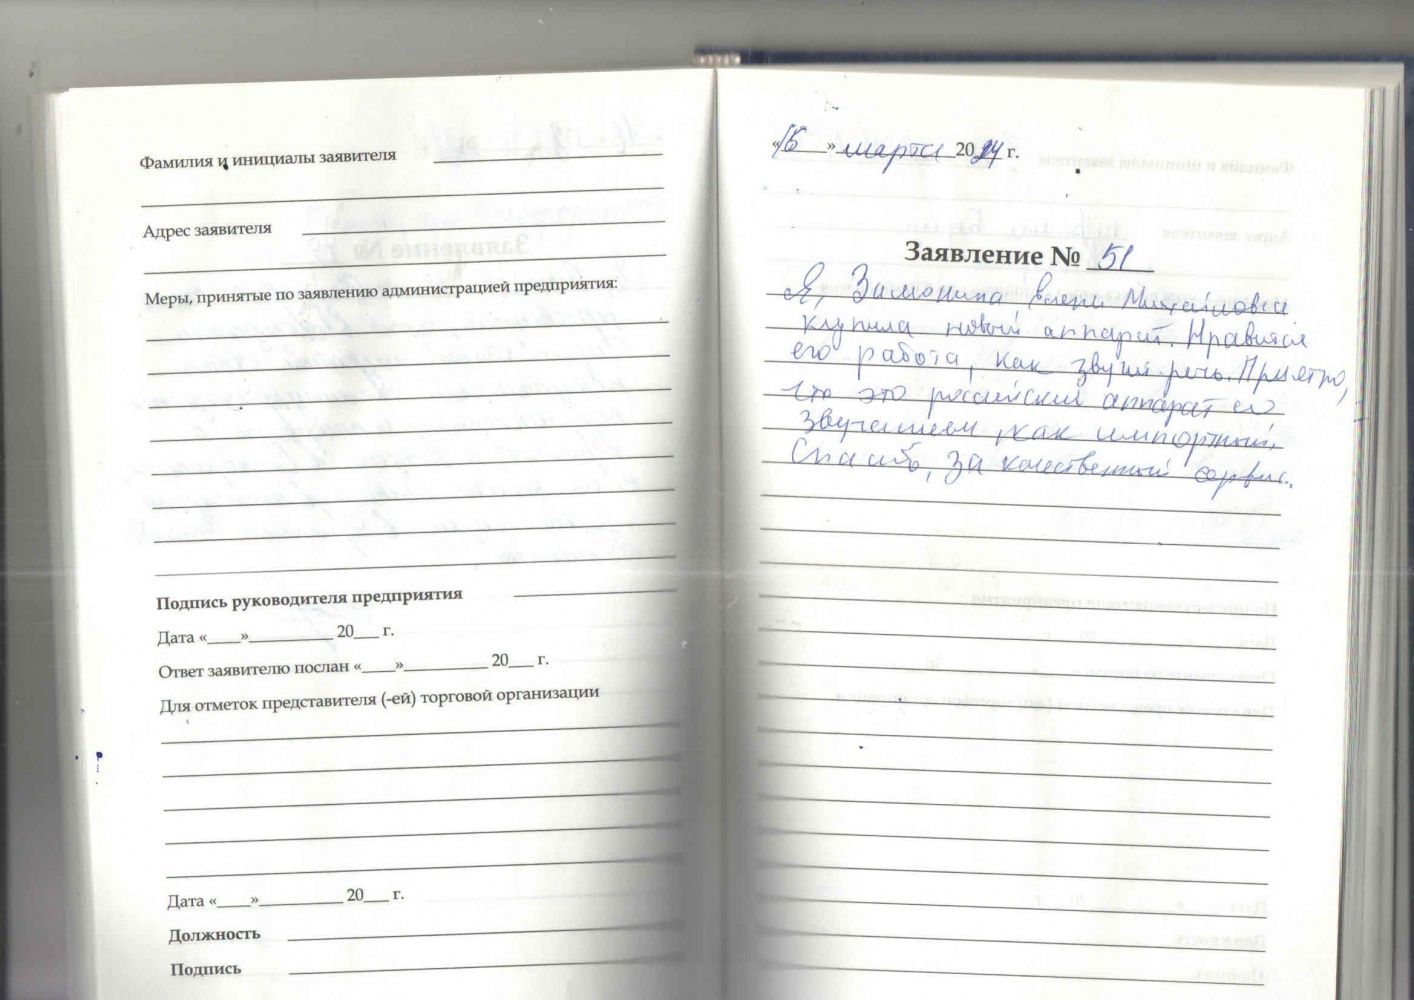 Фамилия и инициалы заявителя
Адрес заявителя
Меры, принятые по заявлению администрацией предприятия:
Подпись руководителя предприятия
Дата «____»__________ 20___ г.
Ответ заявителю послан «____»__________ 20___ г.
Для отметок представителя (-ей) торговой организации
Дата «____»__________ 20___ г.
Должность
Подпись
« » марта 2024 г.
Заявление № 51
Я, Михайловна
купила новый аппарат. Нравится
его работа, как звучит речь. Приятно,
что это российский аппарат со
звучанием, как импортный.
Спасибо, за качественный сервис.